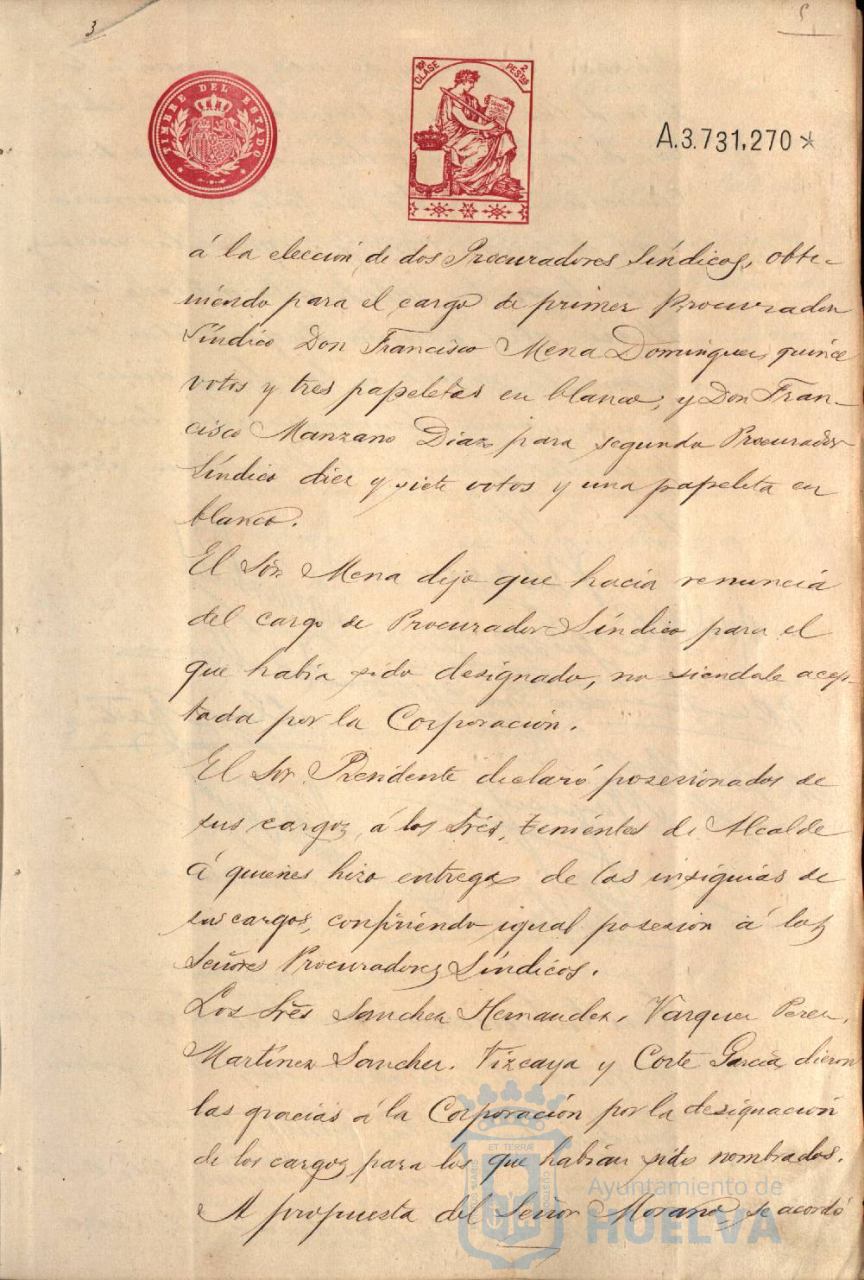 3
5
TIMBRE DEL ESTADO
10ª CLASE
2 PESTAS
A.3.731,270*
á la elección, de dos Procuradores Síndicos, obte-
niendo para el cargo de primer Procurador
Síndico Don Francisco Mena Dominguez, quince
votos y tres papeletas en blanco, y Don Fran-
cisco Manzano Diaz para segundo Procurador
Síndico diez y siete votos y una papeleta en
blanco.
El Sor. Mena dijo que hacía renuncia
del cargo de Procurador Síndico para el
que había sido designado, no siendole acep-
tada por la Corporación.
El Sor. Presidente declaró posesionados de
sus cargos, á los Srés. tenientes de Alcalde
á quienes hizo entrega de las insignias de
sus cargos, confiriendo igual posesion á los
Señores Procuradores Síndicos.
Los Srés Sanchez Hernandez, Vazquez Perez,
Martínez Sanchez. Vizcaya y Corte García dieron
las gracias á la Corporación por la designación
de los cargos para los que habían sido nombrados.
A propuesta del Señor Morano se acordó
ET TERRAE
Ayuntamiento de
HUELVA